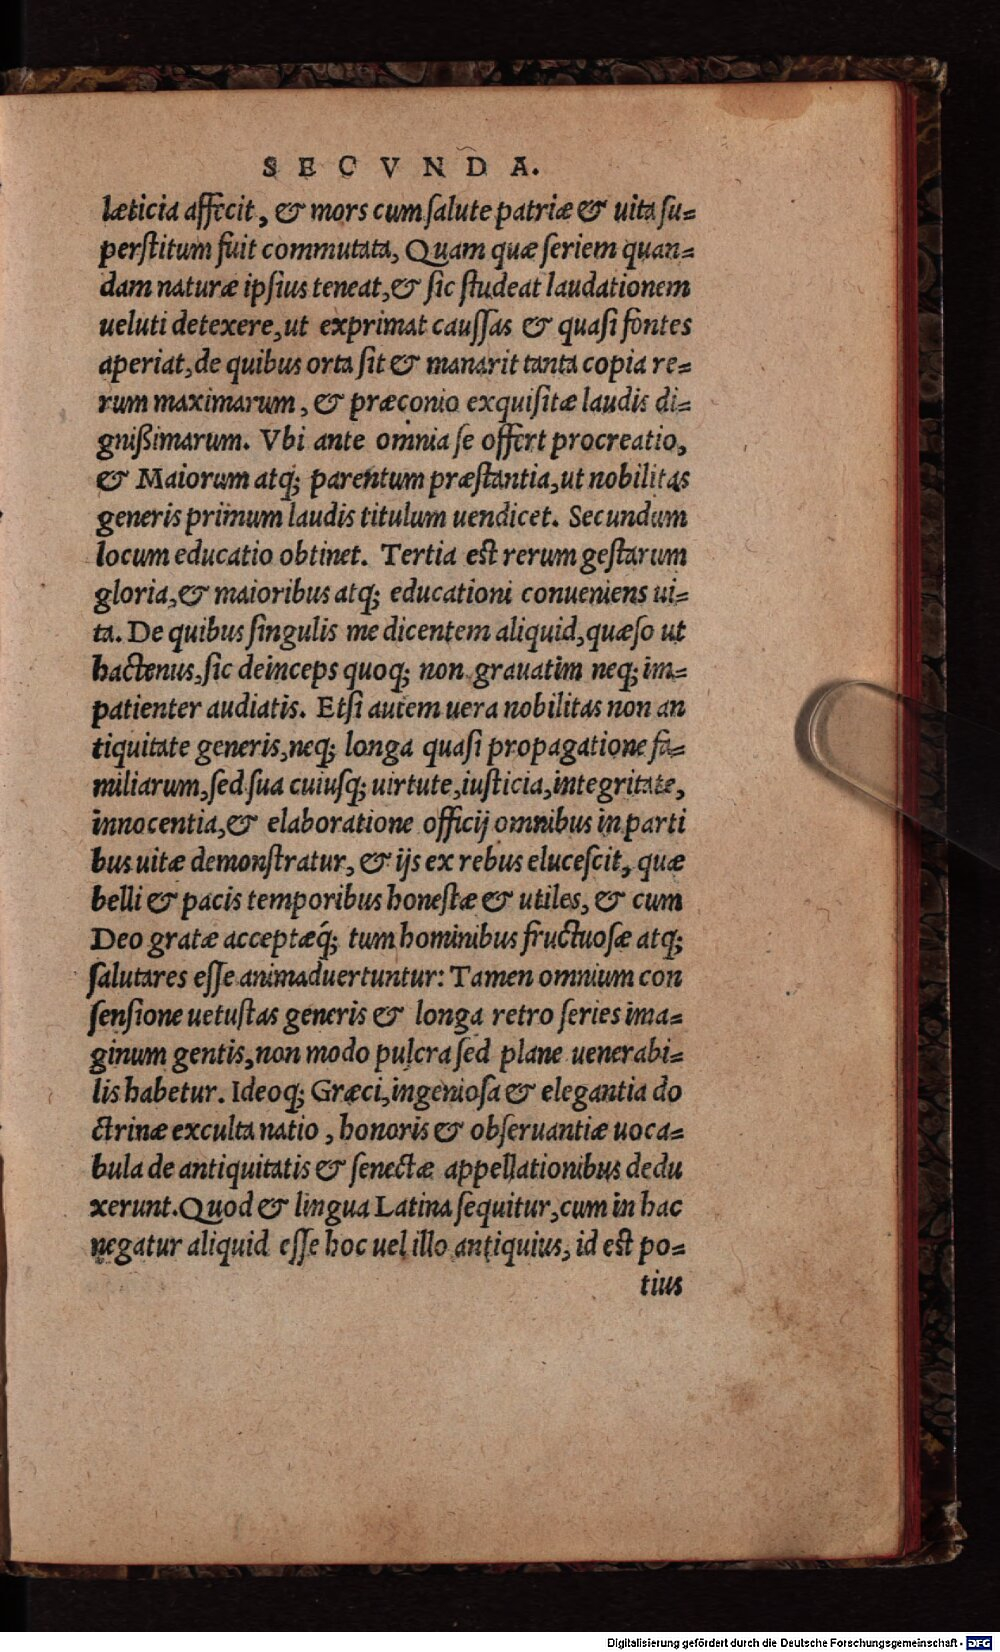 SECVNDA.
læticia affecit, & mors cum ſalute patriæ & uita ſu=
perſtitum fuit commutata, Quam quæ ſeriem quan=
dam naturæ ipſius teneat, & ſic ſtudeat laudationem
ueluti detexere, ut exprimat cauſſas & quaſi fontes
aperiat, de quibus orta ſit & manarit tanta copia re=
rum maximarum, & præconio exquiſitæ laudis di=
gnißimarum. Vbi ante omnia ſe offert procreatio,
& Maiorum atq; parentum præſtantia, ut nobilitas
generis primum laudis titulum uendicet. Secundum
locum educatio obtinet. Tertia est rerum geſtarum
gloria, & maioribus atq; educationi conueniens ui=
ta. De quibus ſingulis me dicentem aliquid, quæſo ut
hactenus, ſic deinceps quoq; non grauatim neq; im=
patienter audiatis. Etſi autem uera nobilitas non an
tiquitate generis, neq; longa quaſi propagatione fa=
miliarum, ſed ſua cuiuſq; uirtute, iuſticia, integritate,
innocentia, & elaboratione officij omnibus in parti
bus uitæ demonſtratur, & ijs ex rebus eluceſcit, quæ
belli & pacis temporibus honeſtæ & utiles, & cum
Deo gratæ acceptæq́; tum hominibus fructuoſæ atq;
ſalutares eſſe animaduertuntur: Tamen omnium con
ſenſione uetuſtas generis & longa retro ſeries ima=
ginum gentis, non modo pulcra ſed plane uenerabi=
lis habetur. Ideoq; Græci, ingenioſa & elegantia do
ctrinæ exculta natio, honoris & obſeruantiæ uoca=
bula de antiquitatis & ſenectæ appellationibus dedu
xerunt. Quod & lingua Latina ſequitur, cum in hac
negatur aliquid eſſe hoc uel illo antiquius, id est po=
tius
Digitalisierung gefördert durch die Deutsche Forschungsgemeinschaft - DFG